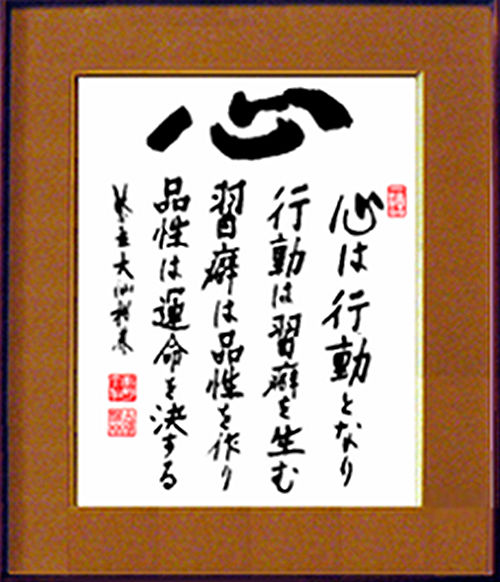 心
心は行動となり
行動は習癖を生む
習癖は品性を作り
品性は運命を決する